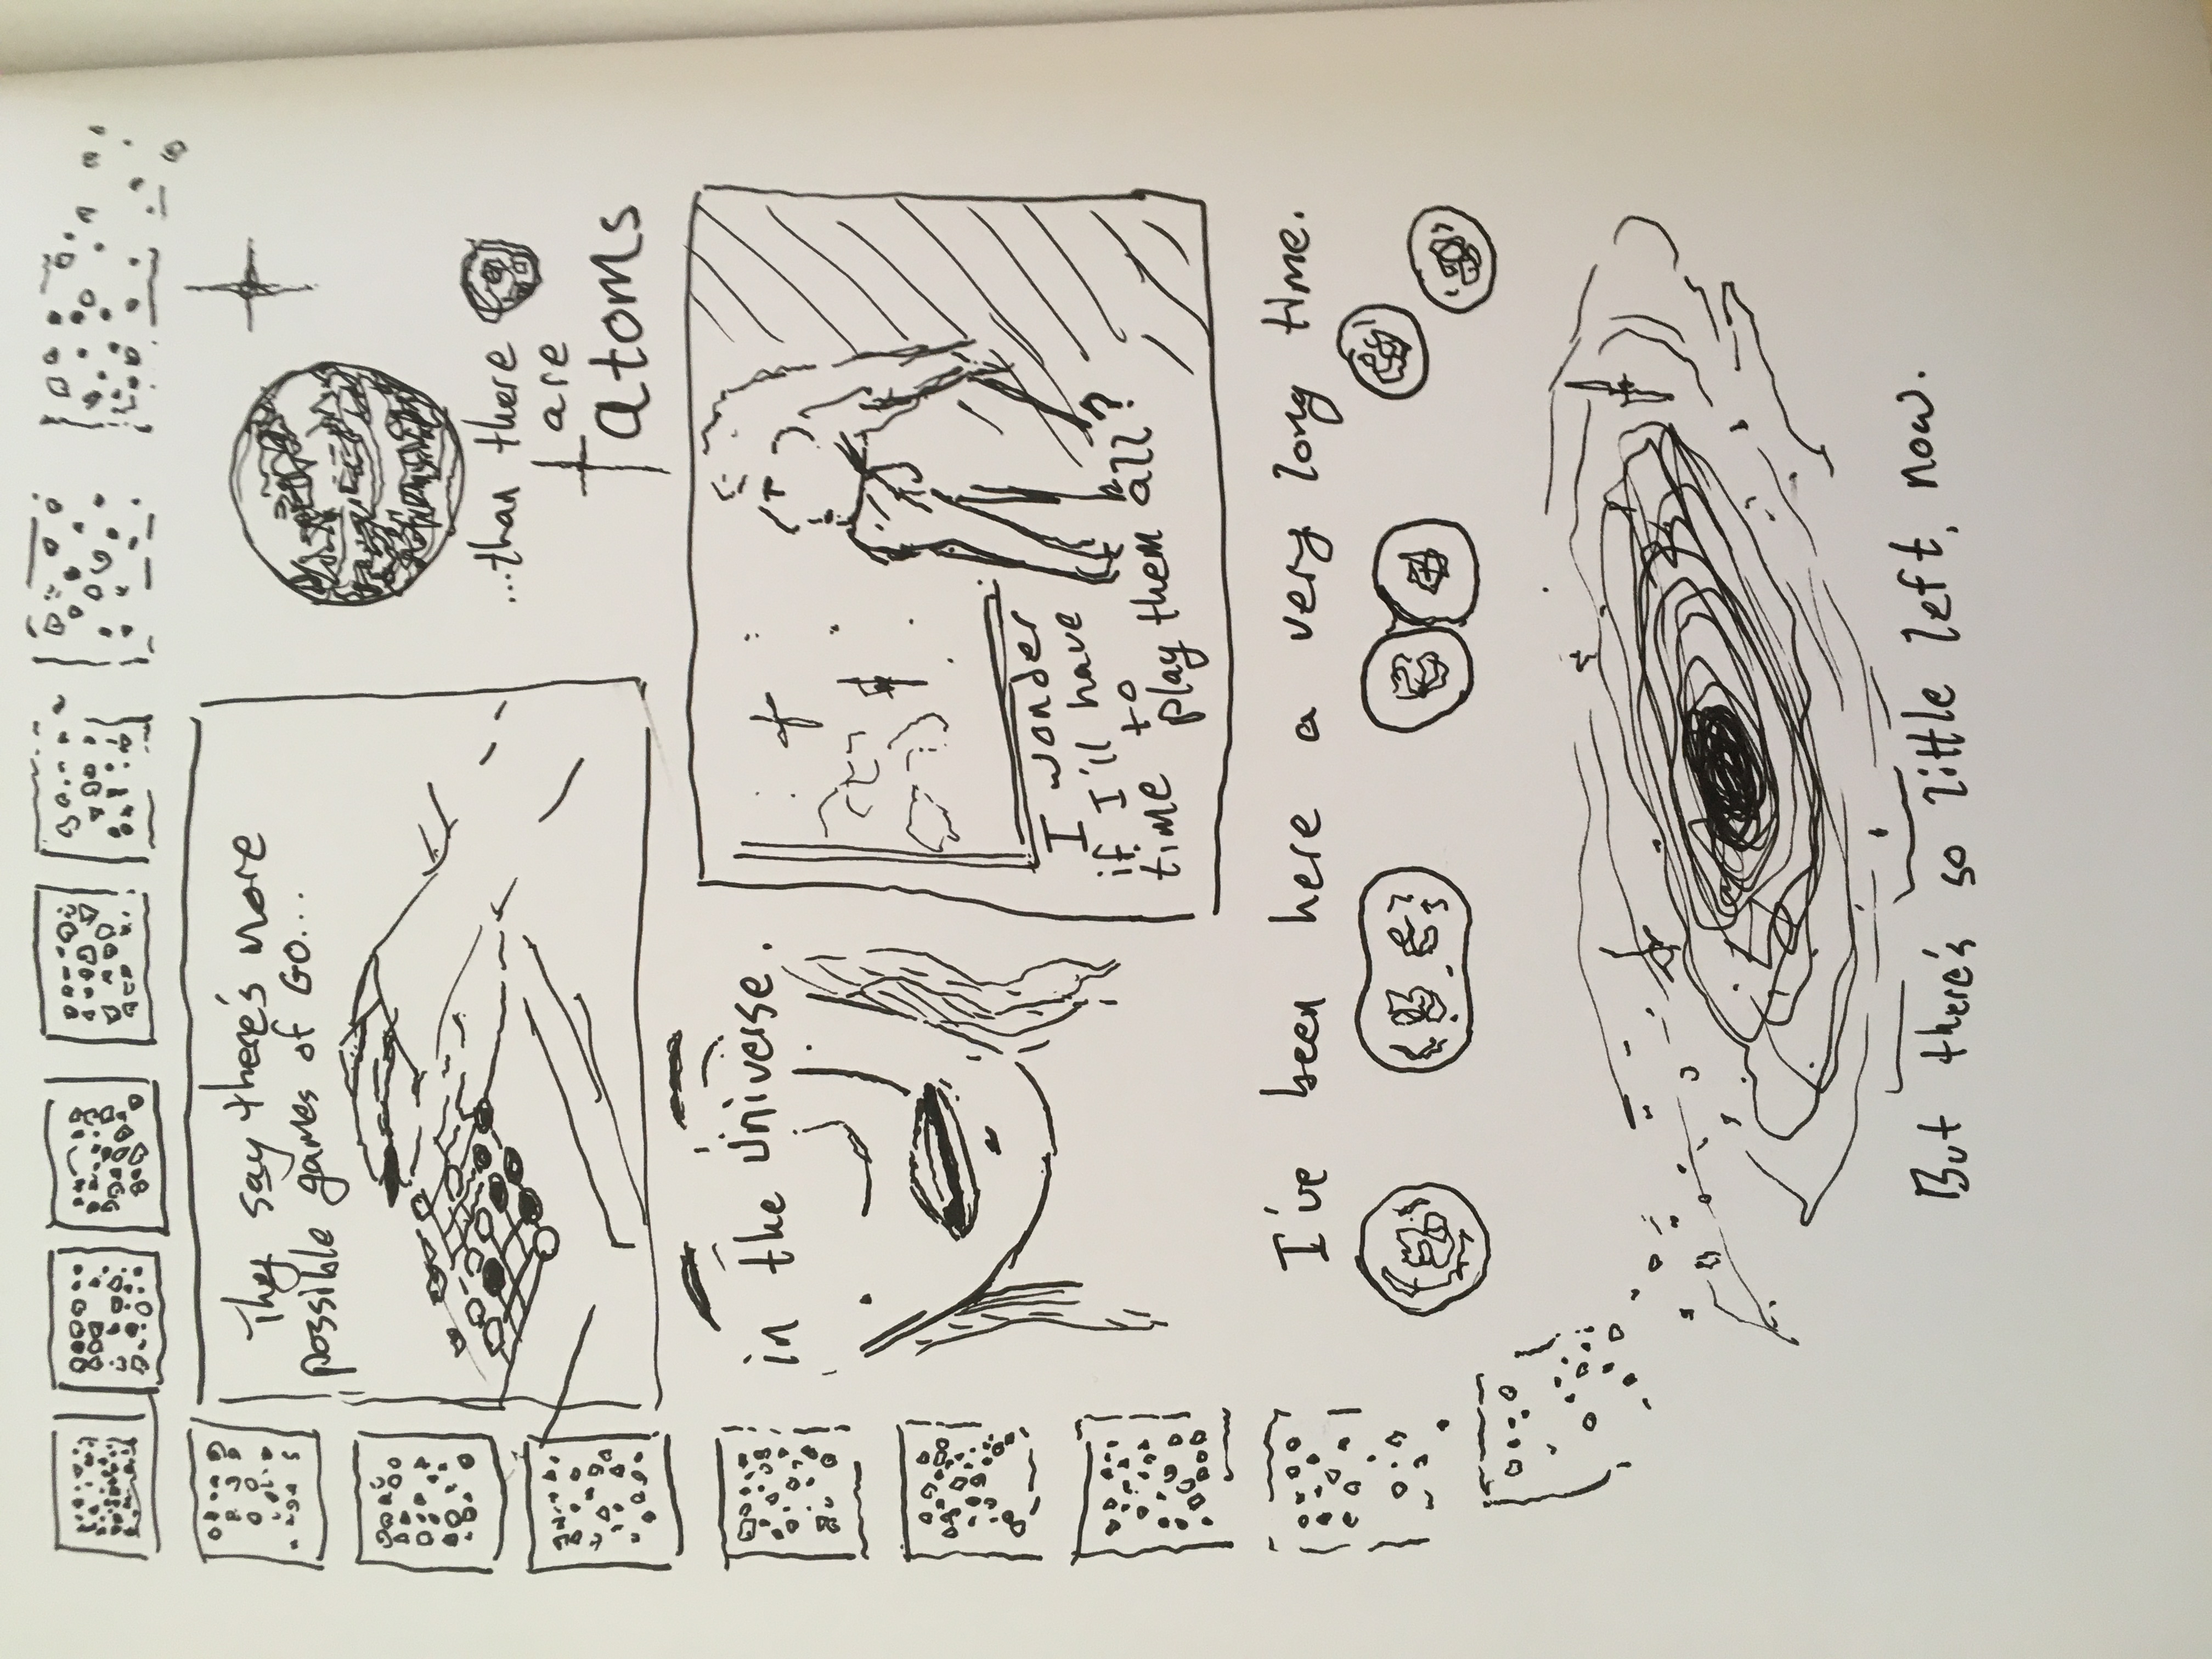 They say there's more
possible games of GO...
...than there
are
atoms
in the Universe.
I wonder
if I'll have
time to
play them all?
I've been here a very long time.
But there's so little left, now.